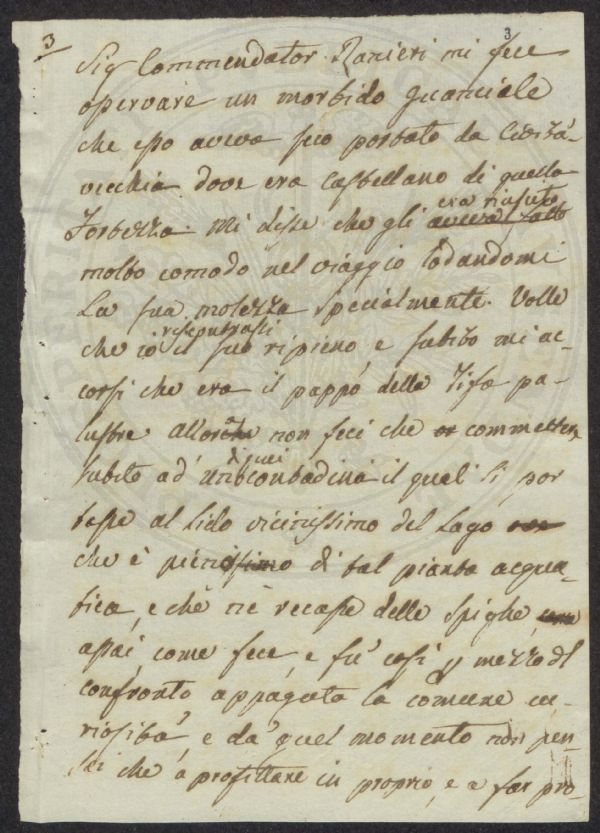 3 3
Sig Commendator Ranieri mi fece
osservare un morbido guanciale
che esso aveva seco portato da Cività-
vecchia dove era Castellano di quella
era riuscito
Fortezza. Mi disse che gli aveva fatto
molto comodo nel viaggio lodandomi
La sua molezza specialmente. Volle
riscontrassi
che io il suo ripieno, e subito mi ac-
corsi che era il pappò della Tifa pa-
lustre. Allora non feci che commettere
di quei
subito ad' uno contadini il quale si por
tasse al Lido vicinissimo del Lago
che è pieno di tal pianta acqua-
tica, e che nè recasse delle Spighe,
assai, come fece, e fù così p mezzo dl
confronto appagata la comune cu-
riosità, e da' quel momento non pen-
sai che à profittare in proprio, e a far pro-